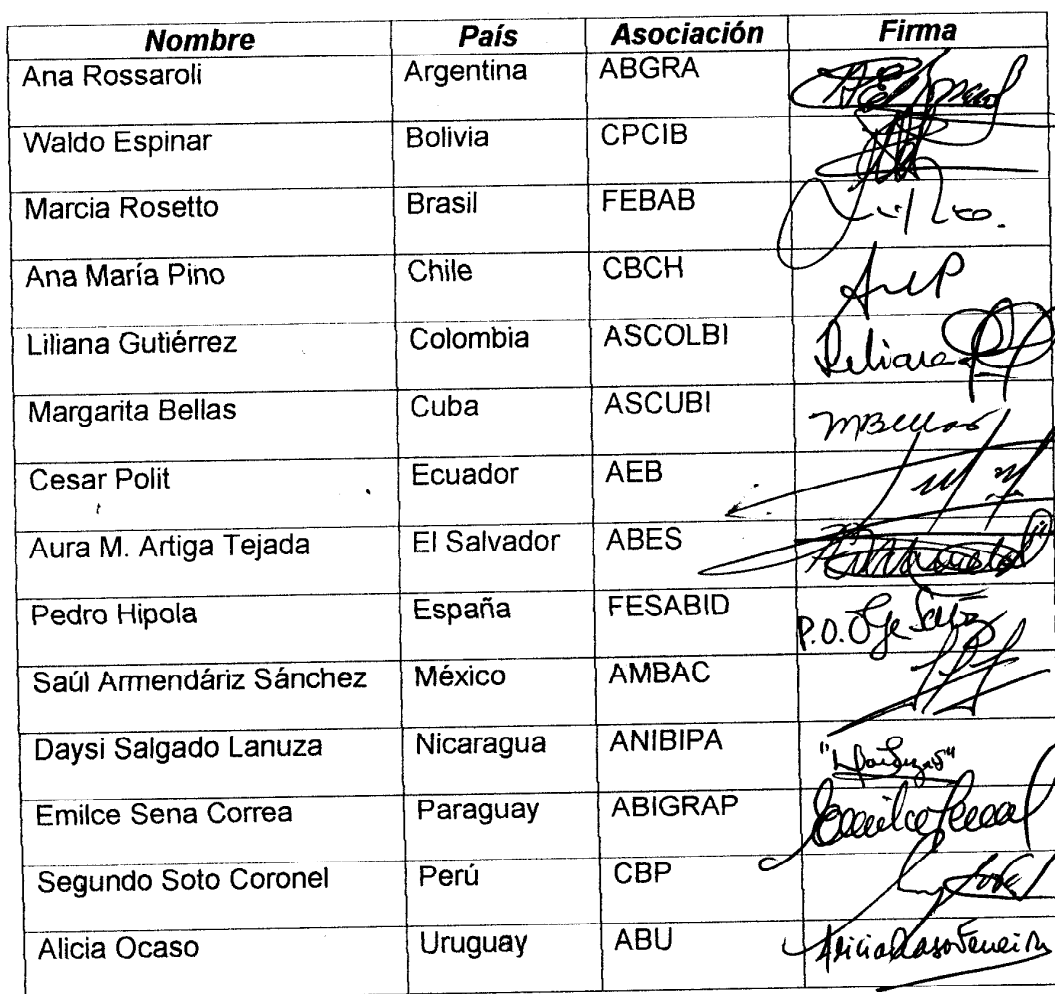 Nombre País Asociación Firma
Ana Rossaroli Argentina ABGRA
Waldo Espinar Bolivia CPCIB
Marcia Rosetto Brasil FEBAB
Ana María Pino Chile CBCH AMP
Liliana Gutiérrez Colombia ASCOLBI Liliana
Margarita Bellas Cuba ASCUBI MBellas
Cesar Polit Ecuador AEB
Aura M. Artiga Tejada El Salvador ABES
Pedro Hipola España FESABID P.O.
Saúl Armendáriz Sánchez México AMBAC
Daysi Salgado Lanuza Nicaragua ANIBIPA
Emilce Sena Correa Paraguay ABIGRAP Emilce Sena
Segundo Soto Coronel Perú CBP
Alicia Ocaso Uruguay ABU Alicia Ocaso Ferreira